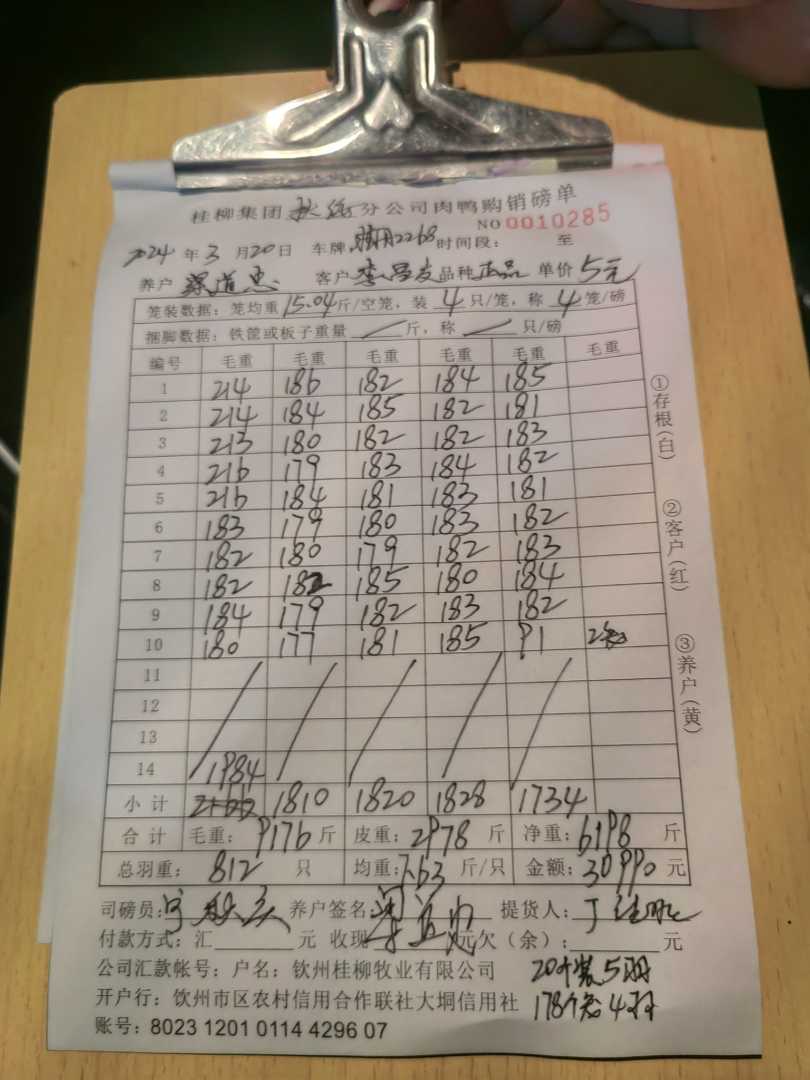 桂柳集团 分公司肉鸭购销磅单
NO 0010285
2024 年 3 月 20 日 车牌 2268 时间段: 至
养户 道忠 客户 李昌友 品种 正品 单价 5元
笼装数据: 笼均重 15.04 斤/空笼, 装 4 只/笼, 称 4 笼/磅
捆脚数据: 铁筐或板子重量 / 斤, 称 / 只/磅
编号 毛重 毛重 毛重 毛重 毛重 毛重
1 214 186 182 184 185
2 214 184 185 182 181
3 213 180 182 182 183
4 216 179 183 184 182
5 216 184 181 183 181
6 183 179 180 183 182
7 182 180 179 182 183
8 182 182 185 180 184
9 184 179 182 183 182
10 180 177 181 185 91
11
12
13
14 1984
小计 1810 1820 1828 1734
合计 毛重: 9176 斤 皮重: 2978 斤 净重: 6198 斤
总羽重: 812 只 均重: 7.63 斤/只 金额: 30990 元
司磅员: 养户签名: 提货人:
付款方式: 汇 元 收现 元欠(余): 元
公司汇款帐号: 户名: 钦州桂柳牧业有限公司 20个装5羽
开户行: 钦州市区农村信用合作联社大垌信用社 178个装4羽
账号: 8023 1201 0114 4296 07
①存根(白)
②客户(红)
③养户(黄)